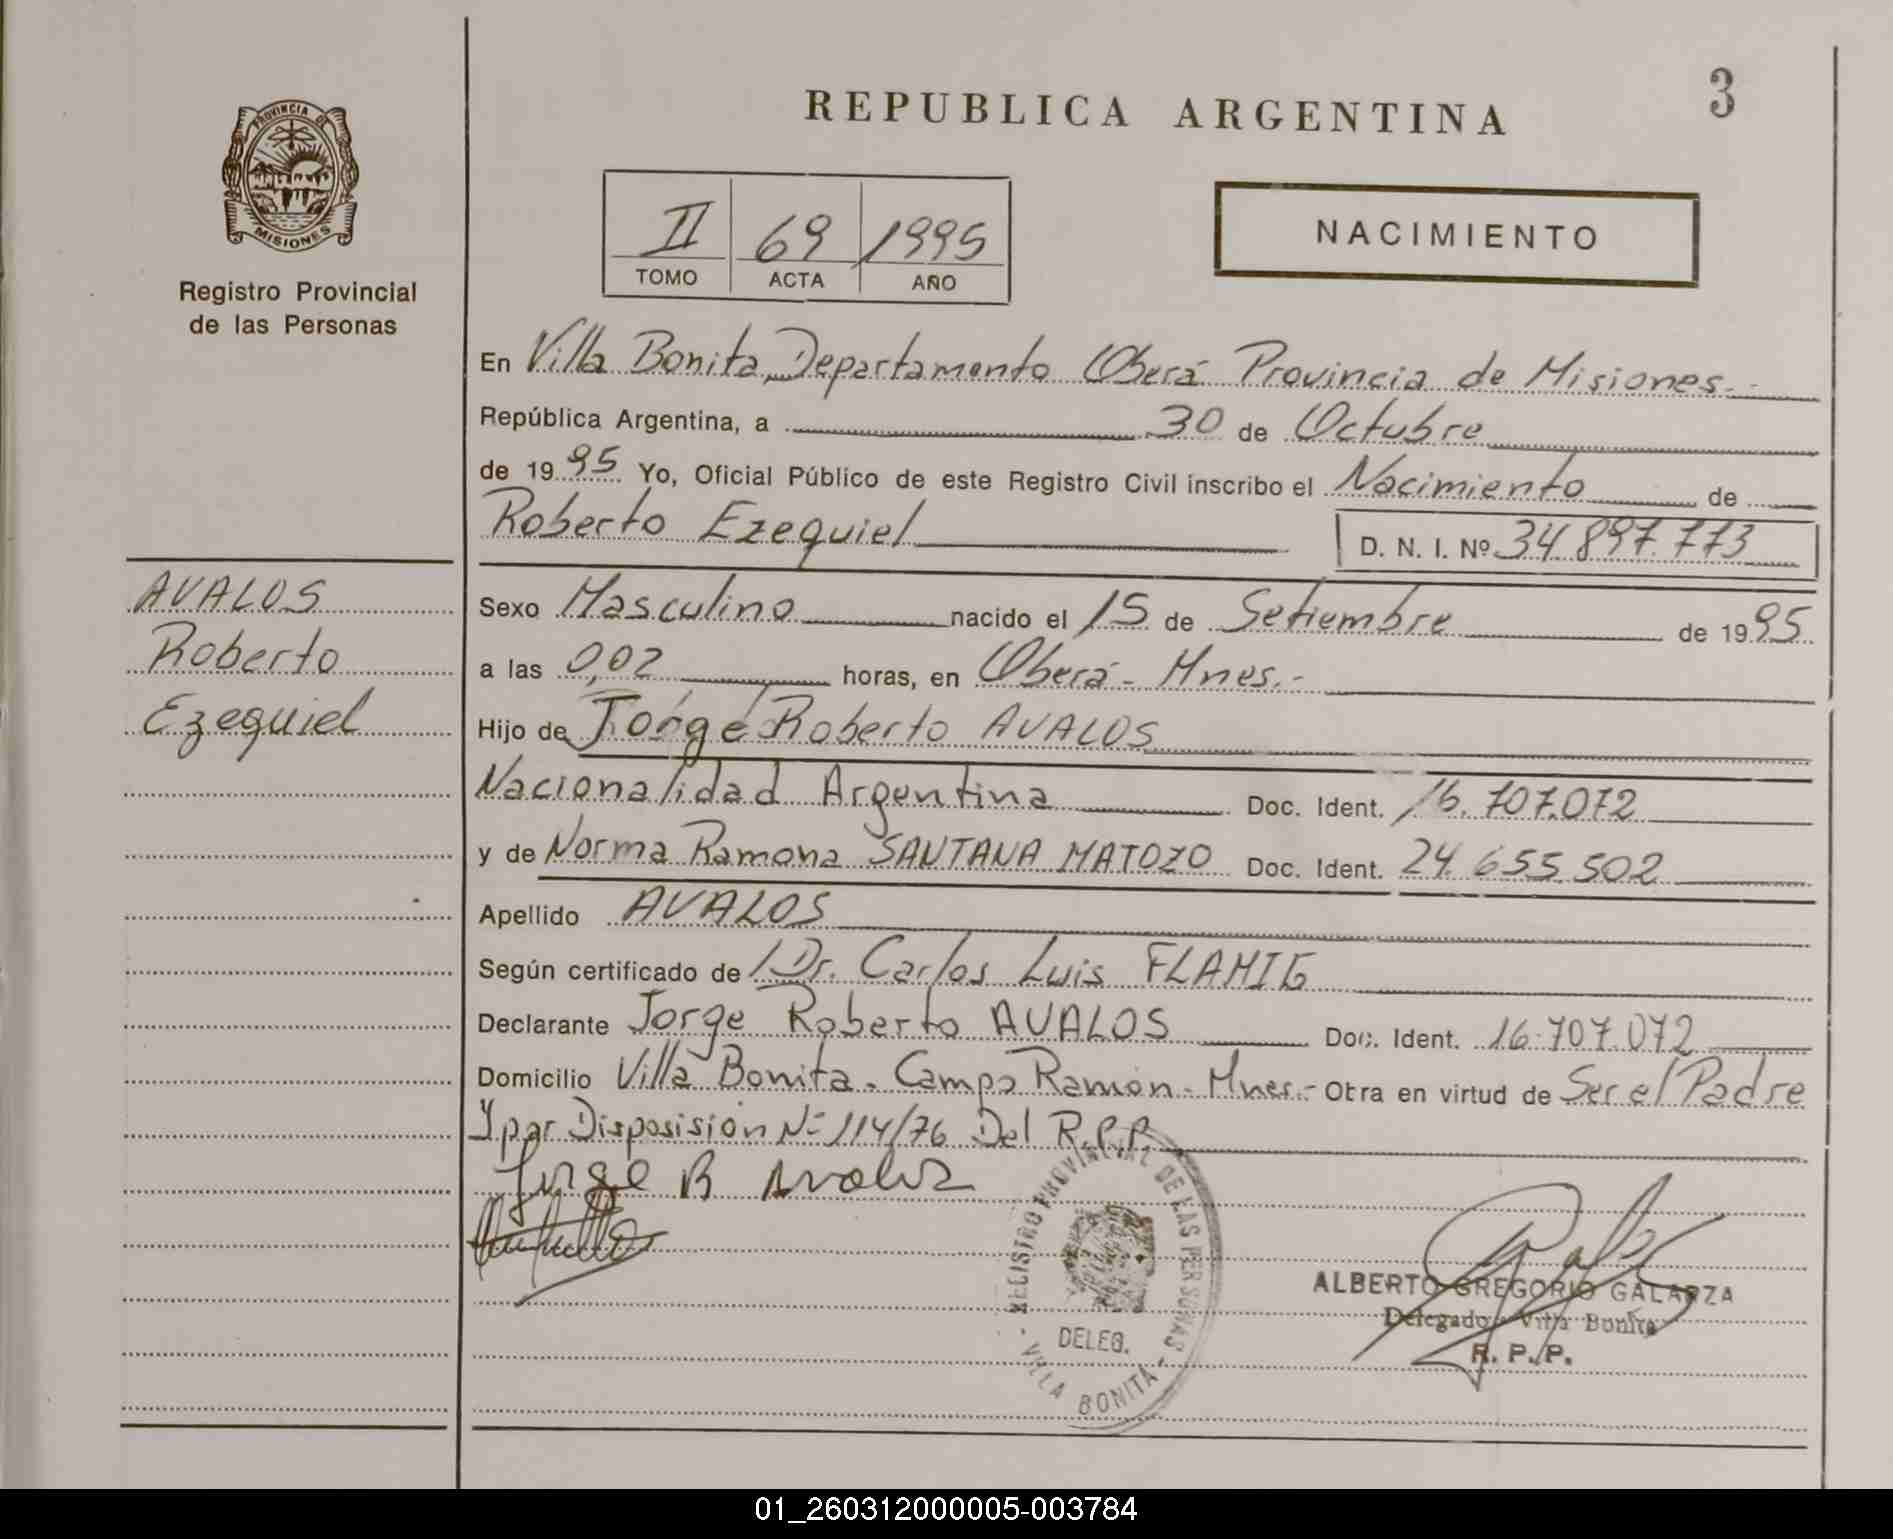 REPUBLICA ARGENTINA
3
PROVINCIA DE
MISIONES
Registro Provincial
de las Personas
II 69 1995
TOMO ACTA AÑO
NACIMIENTO
En Villa Bonita, Departamento Oberá Provincia de Misiones.-
República Argentina, a 30 de Octubre
de 1995 Yo, Oficial Público de este Registro Civil inscribo el Nacimiento de
Roberto Ezequiel D. N. I. Nº 34 897.773
AVALOS
Roberto
Ezequiel
Sexo Masculino nacido el 15 de Setiembre de 1995
a las 0,02 horas, en Oberá - Mnes.-
Hijo de Jorge Roberto AVALOS
Nacionalidad Argentina Doc. Ident. 16.707.072
y de Norma Ramona SANTANA MATOZO Doc. Ident. 24.655.502
Apellido AVALOS
Según certificado de Dr. Carlos Luis FLAMIG
Declarante Jorge Roberto AVALOS Doc. Ident. 16.707.072
Domicilio Villa Bonita - Campo Ramón - Mnes.- Otra en virtud de Ser el Padre
Y por Disposisión Nº 114/76 Del R.P.P.
Jorge R Avalos
REGISTRO PROVINCIAL DE LAS PERSONAS
DELEG.
- VILLA BONITA -
ALBERTO GREGORIO GALARZA
Delegado - Villa Bonita
R. P. P.
01_260312000005-003784